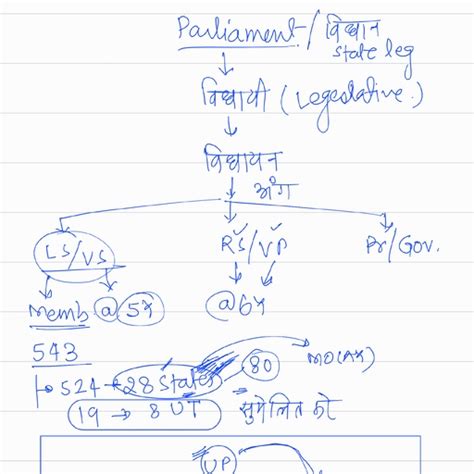 Parliament / विधान
state leg
विधायी (Legeslative.)
विधायन
अंग
LS/VS RS/VP Pr/Gov.
Memb @ 5x @6x
543
524 28 States 80 MO(AX)
19 → 8 UT सुमेलित करे
UP